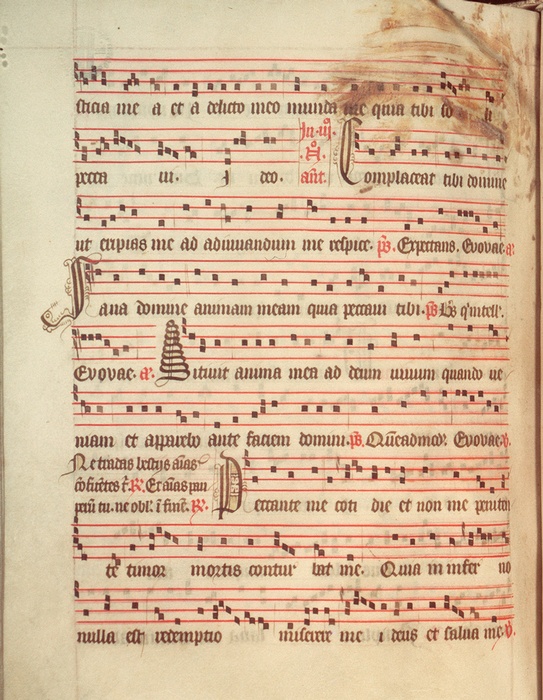 sticia me a et a delicto meo munda me quia tibi so li
pecca ui. deo. In .iij. añt. Complaceat tibi domine
ut eripias me ad adiuuandum me respice. ps. Expectans. Evovae. a.
Sana domine animam meam quia peccaui tibi. ps Bs q'intell'.
Evovae. a. Sitiuit anima mea ad deum uiuum quando ue
niam et apparebo ante faciem domini. ps. Quēadmod. Evovae. v.
Ne tradas bestijs aīas
cōfitētes t'. R. Et aīas pau
perū tu. ne obl. ī finē. R. Peccante me coti die et non me peniten
te timor mortis contur bat me. Quia in infer no
nulla est redemptio miserere me i deus et salua me. v.